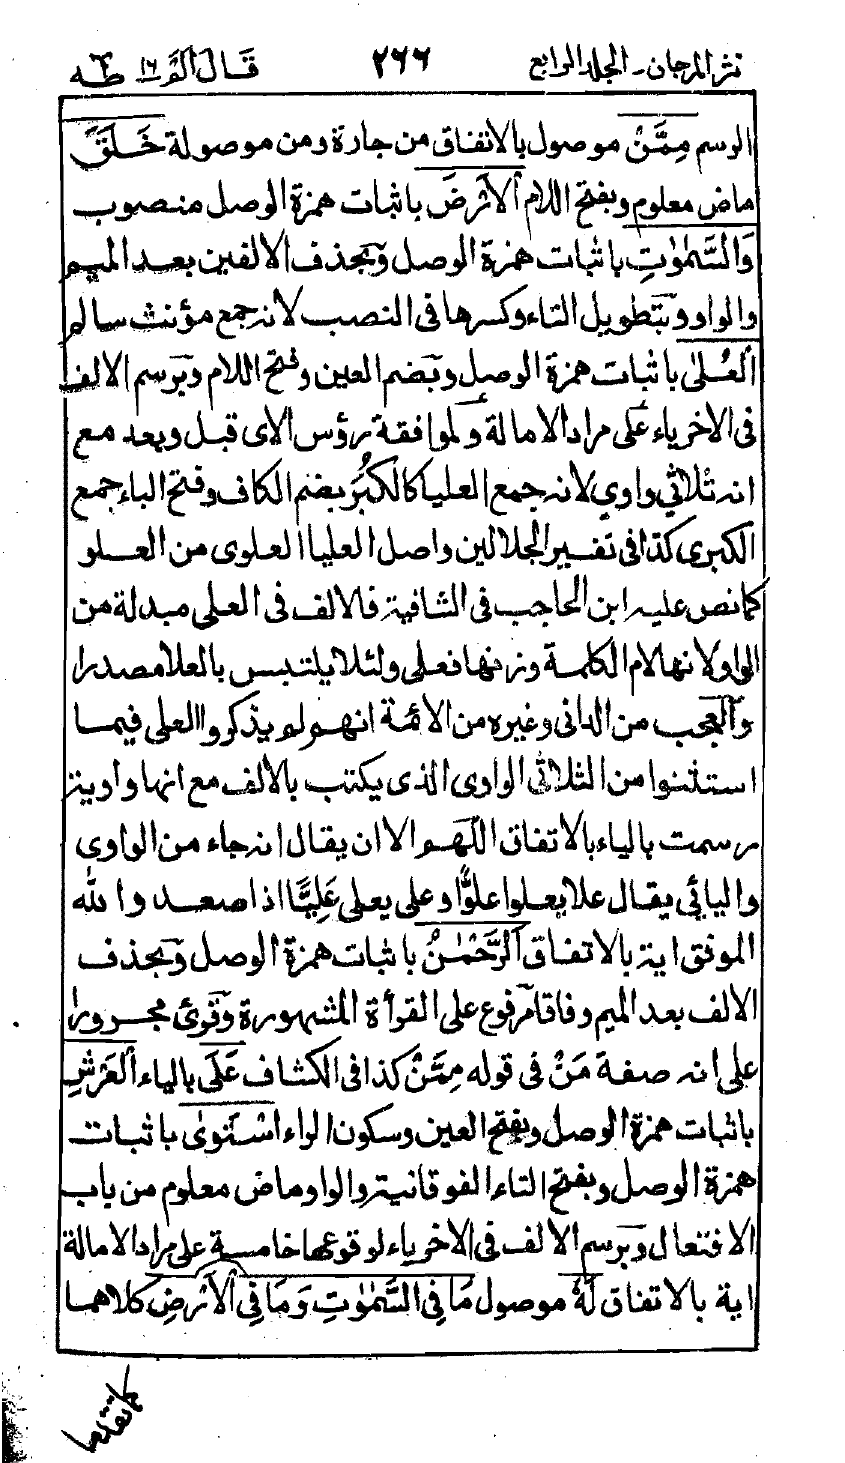 نثر المرجان ـ المجلد الرابع ٢٦٦ قال الم ١٦ طه
الرسم مِمَّنْ موصول بالاتفاق من جارة ومن موصولة خَلَقَ
ماض معلوم وبفتح اللام الْاَرْضَ باثبات همزة الوصل منصوب
وَالسَّمٰوٰتِ باثبات همزة الوصل وبحذف الالفين بعد الميم
والواو وبتطويل التاء وكسرها فى النصب لانه جمع مؤنث سالم
الْعُلٰى باثبات همزة الوصل وبضم العين وفتح اللام وبرسم الالف
فى الاخر ياء على مراد الامالة ولموافقة رؤس الاى قبل وبعد مع
انه ثلاثي واوي لانه جمع العليا كالكُبَر بضم الكاف وفتح الباء جمع
الكبرى كذا فى تفسير الجلالين واصل العليا العلوى من العلو
كما نص عليه ابن الحاجب فى الشافية فالالف فى العلى مبدلة من
الواو لانها لام الكلمة وزنها فعلى ولئلا يلتبس بالعلا مصدرا
والعجب من الدانى وغيره من الائمة انهم لم يذكروا العلى فيما
استثنوا من الثلاثي الواوى الذى يكتب بالالف مع انها واوية
رسمت بالياء بالاتفاق اللهم الا ان يقال انه جاء من الواوى
واليائي يقال علا يعلوا علوًّا وعلى يعلى عَلِيًّا اذا صعد والله
الموفق اية بالاتفاق اَلرَّحْمٰنُ باثبات همزة الوصل وبحذف
الالف بعد الميم وفاقا مرفوع على القرأة المشهورة وقرئ مجرورا
على انه صفة مَنْ فى قوله مِمَّنْ كذا فى الكشاف عَلَى بالياء الْعَرْشِ
باثبات همزة الوصل وبفتح العين وسكون الراء اسْتَوٰى باثبات
همزة الوصل وبفتح التاء الفوقانية والواو ماض معلوم من باب
الافتعال وبرسم الالف فى الاخر ياء لوقوعها خامسة على مراد الامالة
اية بالاتفاق لَهٗ موصول مَا فِى السَّمٰوٰتِ وَمَا فِى الْاَرْضِ كلاهما
كما تقدما